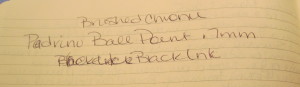 Brushed Chrome
Pedrino Ball Point .7mm
Black Ink